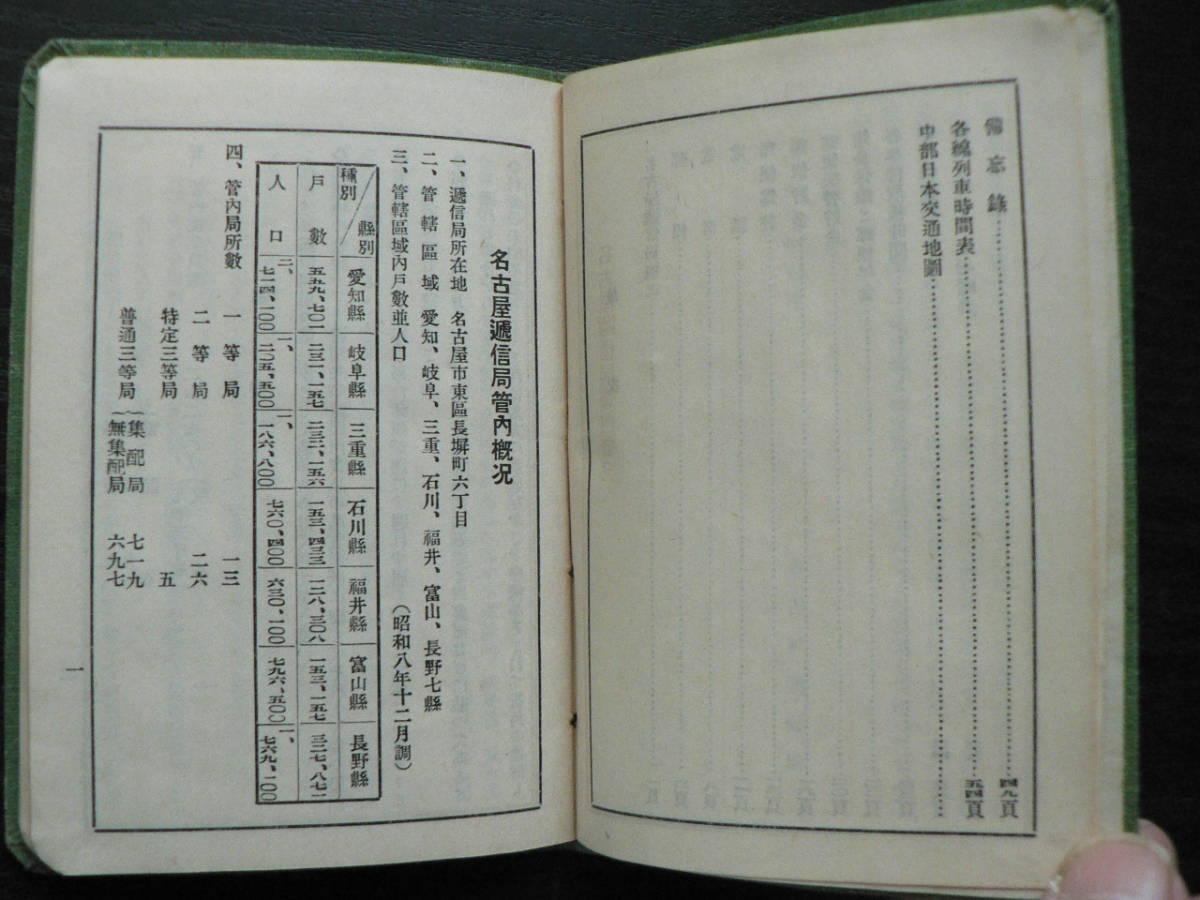 備忘錄……四九頁
各線列車時間表……五四頁
中部日本交通地圖……
名古屋遞信局管內概況
一、遞信局所在地　名古屋市東區長塀町六丁目
二、管轄區域　愛知、岐阜、三重、石川、福井、富山、長野七縣
三、管轄區域內戶數並人口　（昭和八年十二月調）
種別／縣別　愛知縣　岐阜縣　三重縣　石川縣　福井縣　富山縣　長野縣
戶數　五五九、七〇二　二三一、一五七　二三二、一五六　一五三、四三三　一二八、三〇八　一五三、一五七　三二七、八七一
人口　二、七一四、一〇〇　一、二〇五、五〇〇　一、一八六、八〇〇　七六〇、四〇〇　六三〇、一〇〇　七九六、五〇〇　一、七六九、一〇〇
四、管內局所數　一等局　一三
二等局　二六
特定三等局　五
普通三等局　集配局　七一九
無集配局　六九七
一